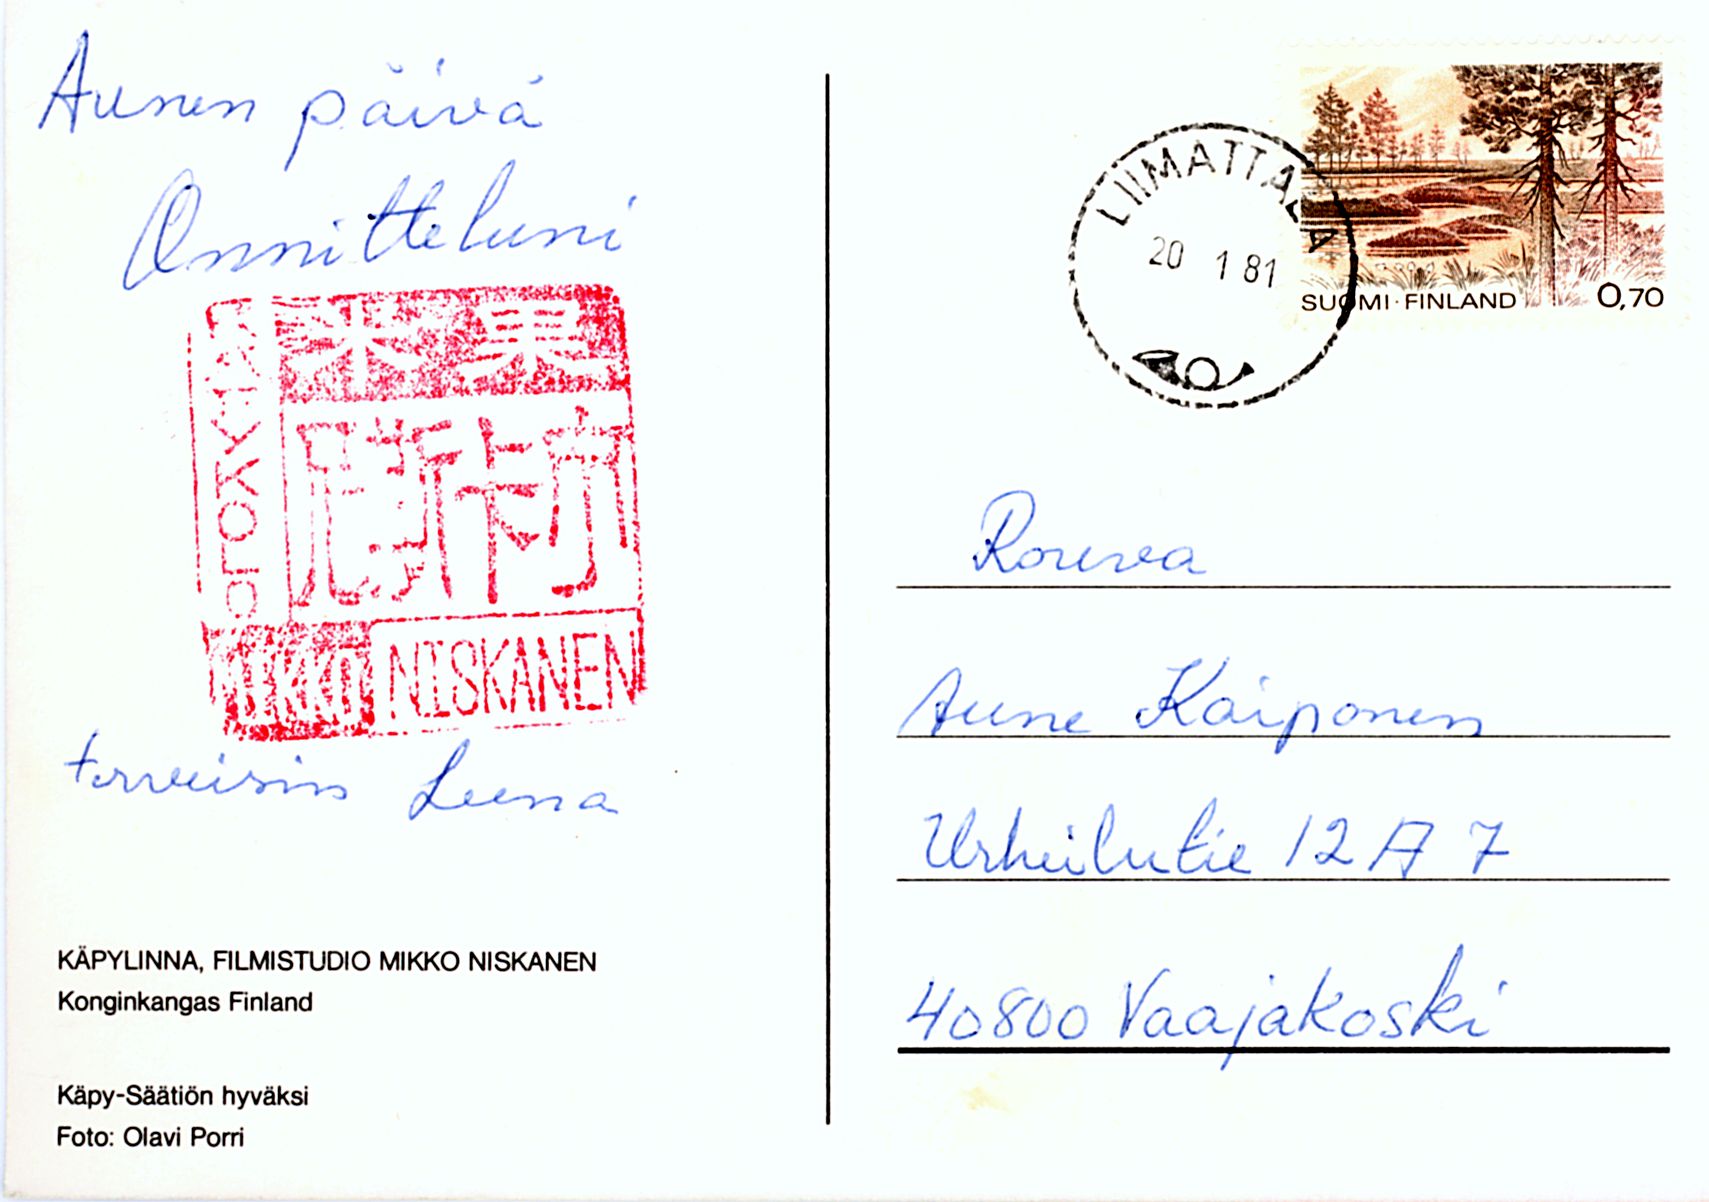 Aunen päivä
Onnitteluni
米果
斯卡
OHJAAJA
MIKKO NISKANEN
terveisin Leena
KÄPYLINNA, FILMISTUDIO MIKKO NISKANEN
Konginkangas Finland
Käpy-Säätiön hyväksi
Foto: Olavi Porri
LIIMATTALA
20 1 81
SUOMI · FINLAND 0,70
Rouva
Aune Kaiponen
Urheilutie 12 A 7
40800 Vaajakoski